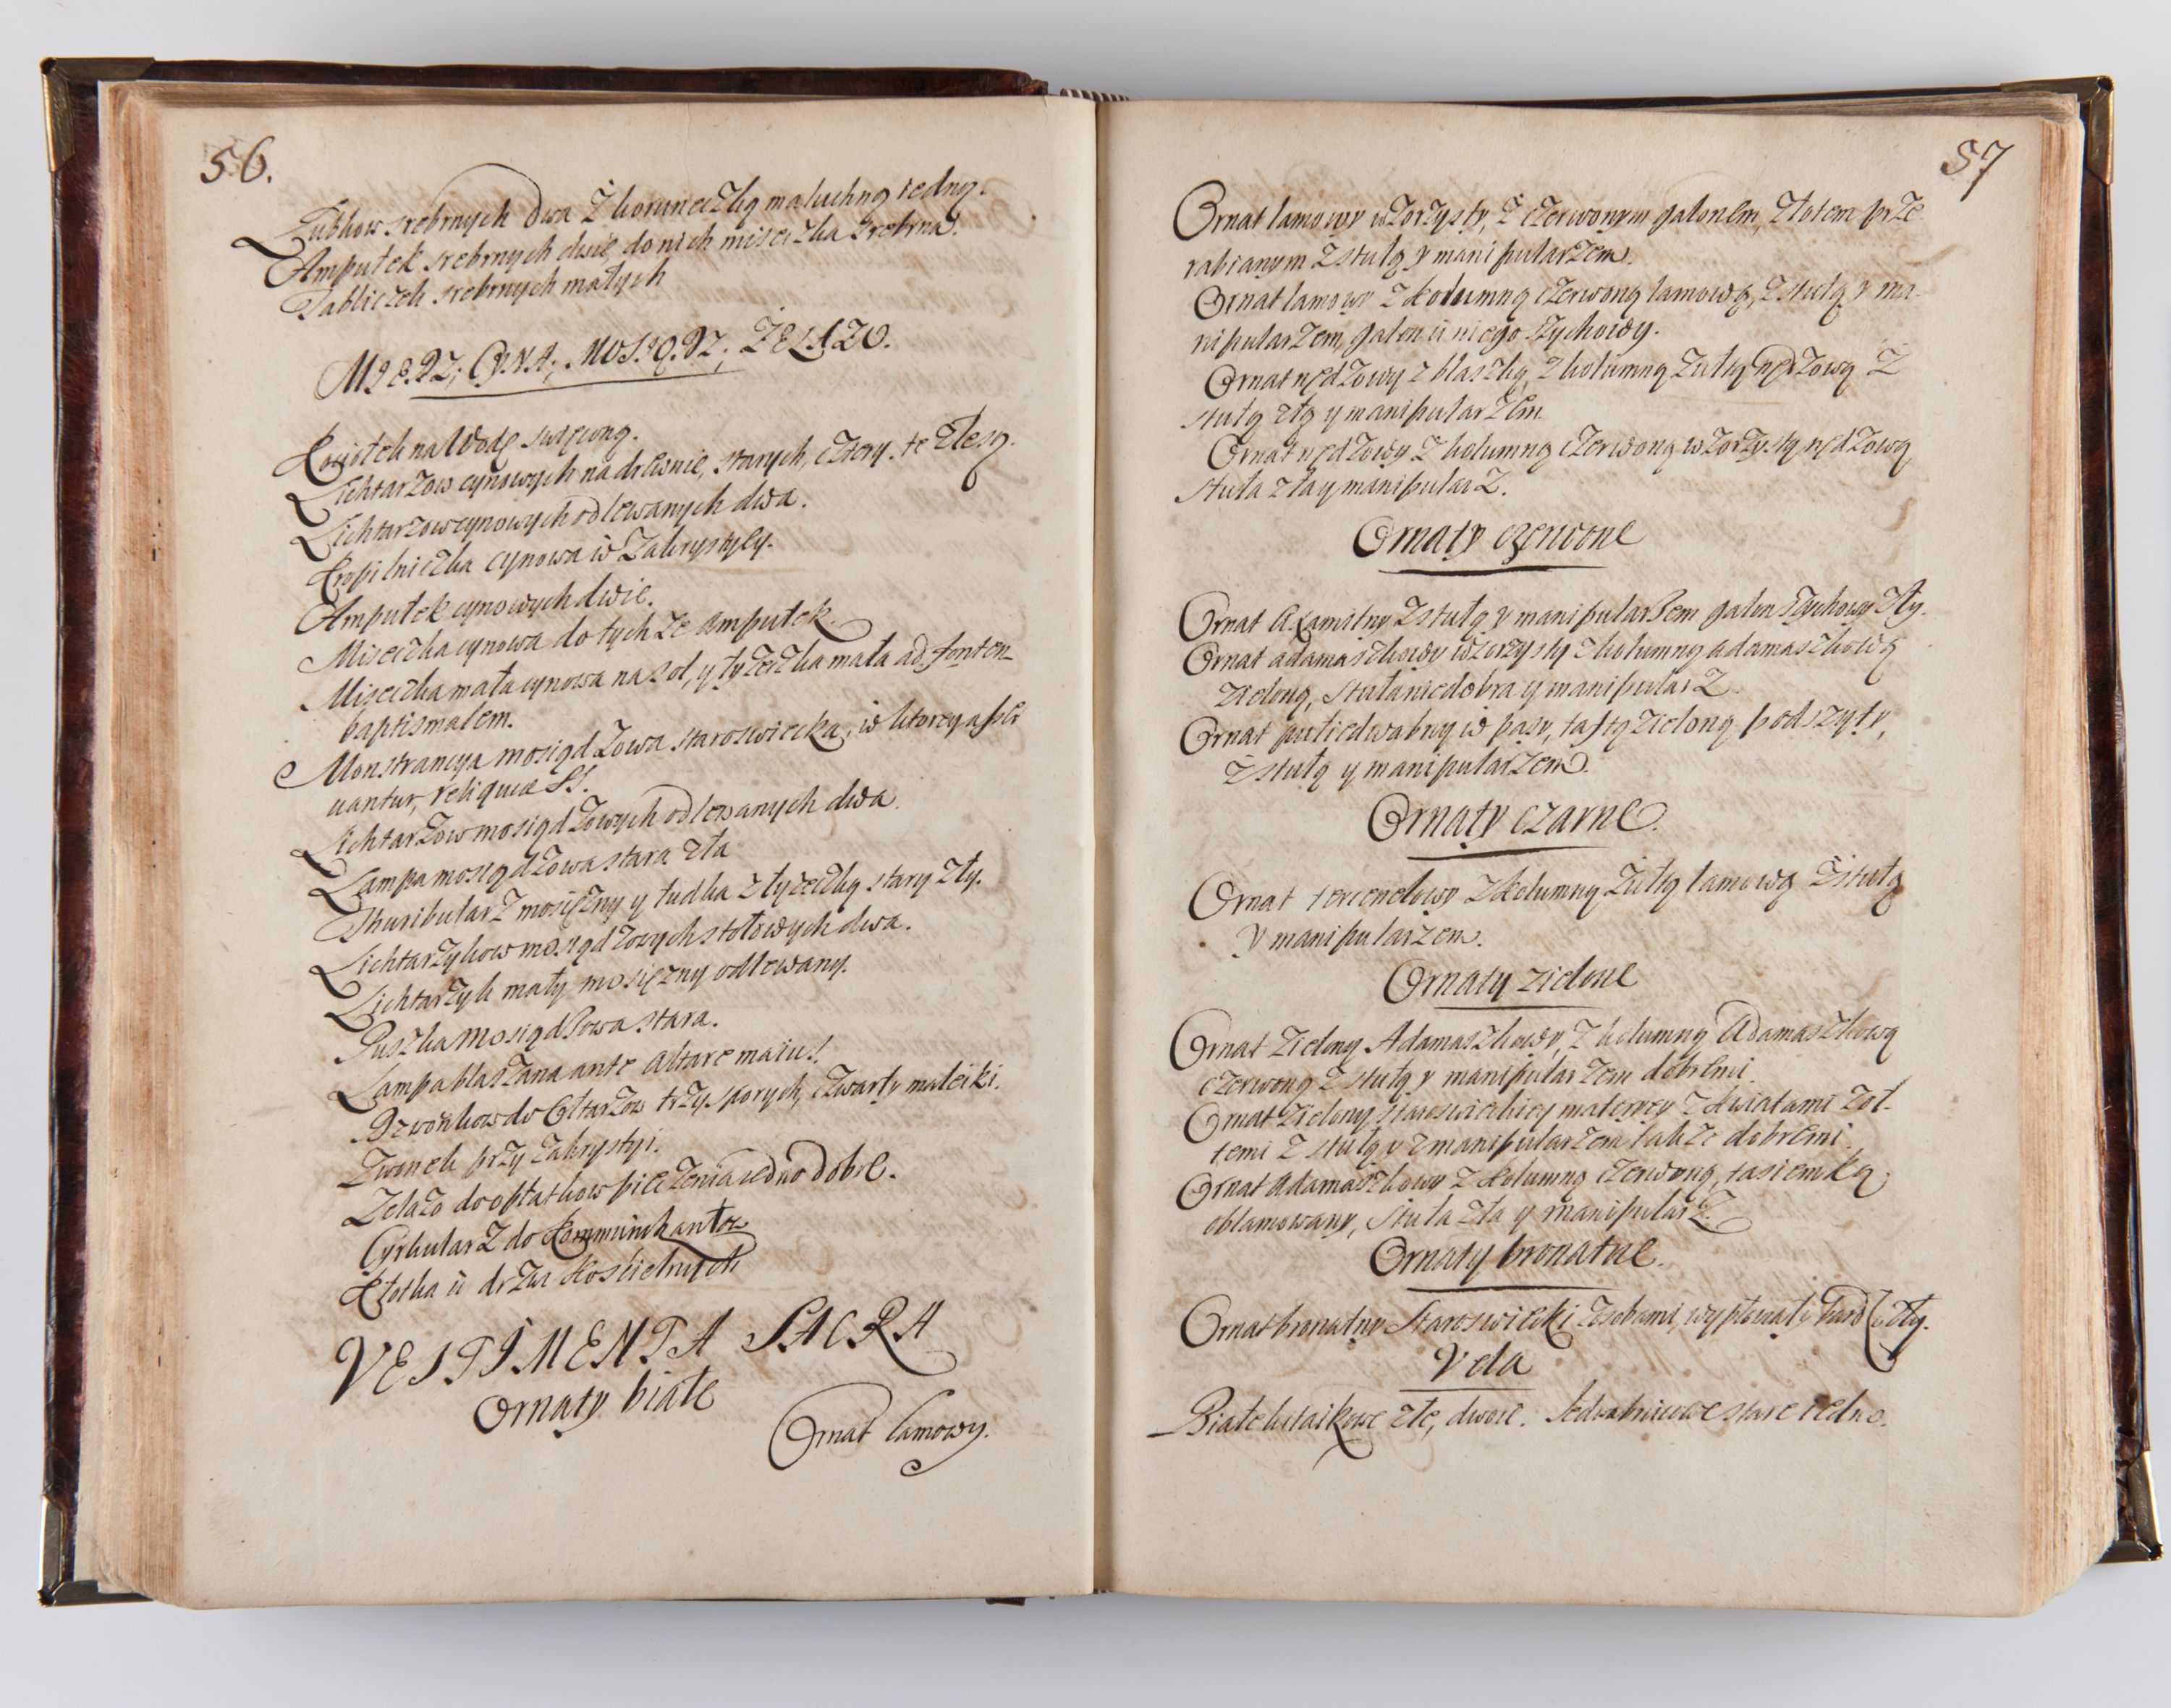 56.
Ząbkow srebrnych dwa Z koruneczką maluchną iedną.
Ampułek srebrnych dwie, do nich miseczka srebrna.
Tabliczek srebrnych małych
MIEDZ, CYNA, MOSIĄDZ, ŻELAZO.
Kociołek na Wodę swięconą.
Lichtarzow cynowych na drewnie, starych, cztery. te złe są.
Lichtarzow cynowych odlewanych dwa.
Kropilniczka cynowa w Zakrystyey.
Ampułek cynowych dwie.
Miseczka cynowa do tychze ampułek.
Miseczka mała cynowa na sol, y łyżeczka mała ad fonten
baptismalem.
Monstrancya mosiądzowa staroswiecka, w ktorey asser
uantur, reliquiæ SS.
Lichtarzow mosiądzowych odlewanych dwa.
Lampa mosiądzowa stara zła
Thuribularz mosiężny y łudka z łyżeczką stary zły.
Lichtarzykow mosiądzowych stołowych dwa.
Lichtarzyk mały mosiężny odlewany.
Puszka mosiądzowa stara.
Lampa blaszana ante altare maius.
Dzwonkow do Ołtarzow trzy sporych, czwarty maleiki.
Zwonek przy zakrystyi.
Żelazo do opłatkow pieczenia iedno dobre.
Cyrkularz do kommunikantow
Kłotka u drzwi kościelnych
VESTIMENTA SACRA
Ornaty białe
Ornat lamowy.
57
Ornat lamowy wzorzysty, Z czerwonym galonem, złotem prze
rabianym z stułą y manipularzem.
Ornat lamowy z kolumną czerwoną lamową, z stułą y ma
nipularzem, galon u niego szychowy.
Ornat nędzowy z blaszką, z kolumną żułtą nędzową z
stułą złą y manipularzem
Ornat nędzowy z kolumną czerwoną wzorzystą nędzową
stuła zła y manipularz.
Ornaty czerwone
Ornat axamitny z stułą y manipularzem galon szychowy zły.
Ornat adamaszkowy wzorzysty z kolumną adamaszkową
zieloną, stuła niedobra y manipularz
Ornat pułiedwabny w pasy, taftą zieloną podszyty,
z stułą y manipularzem.
Ornaty czarne.
Ornat tercenelowy z kolumną żułtą lamową z stułą
y manipularzem.
Ornaty zielone
Ornat zielony Adamaszkowy, z kolumną Adamaszkową
czerwoną z stułą y manipularzem dobremi.
Ornat zielony staroswieckiey materyey z kwiatami żoł
temi z stułą y z manipularzem także dobremi.
Ornat Adamaszkowy z kolumną czerwoną, tasiemką
oblamowany, stuła zła y manipularz.
Ornaty bronatne.
Ornat bronatny staroswiecki z osobami, wypłowiały bardzo zły.
Vela
Białe kitaikowe złe, dwoie. Iedwabniowe stare iedno.